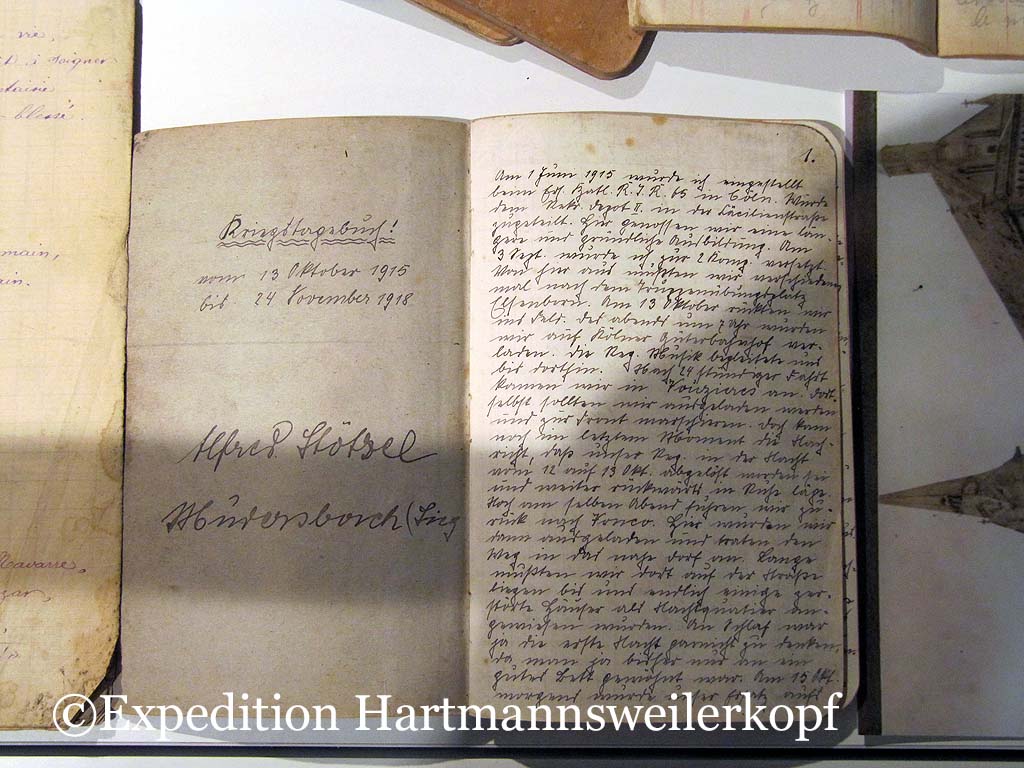 vie,
soigner
blessé.
main,
ain.
Navarre,
Kriegstagebuch!
vom 13 Oktober 1915
bis 24 November 1918
Alfred Stötzel
Mudersbach (Sieg
1.
Am 1 Juni 1915 wurde ich eingestellt
beim Ers. Batl. R. I. R. 65 in Cöln. Wurde
dem Rekr. Depot II. in der Cäcilienstraße
zugeteilt. Hier genossen wir eine län-
gere und gründliche Ausbildung. Am
3 Sept. wurde ich zur 2 Komp. versetzt.
Von hier aus mußten wir verschiedene
mal nach dem Truppenübungsplatz
Elsenborn. Am 13 Oktober rückten wir
ins Feld. Des abends um 7 Uhr wurden
wir auf Kölner Güterbahnhof ver-
laden. Die Reg. Musik begleitete uns
bis dorthin. Nach 24 stündiger Fahrt
kamen wir in Vouzieres an. Dort
selbst sollten wir ausgeladen werden
und zur Front marschieren. Doch kam
noch im letztem Moment die Nach-
richt, daß unser Reg. in der Nacht
vom 12 auf 13 Okt. abgelöst worden sei
und weiter rückwärts in Ruhe läge.
Noch am selben Abend fuhren wir zu-
rück nach Soneo. Hier wurden wir
dann ausgeladen und traten den
Weg in das nahe Dorf an. Lange
mußten wir dort auf der Straße
liegen bis uns endlich einige zer-
störte Häuser als Nachtquatier an-
gewiesen wurden. An Schlaf war
ja die erste Nacht garnicht zu denken,
da man ja bisher nur an ein
gutes Bett gewöhnt war. Am 15 Okt.
morgens wurde unser Ersatz aufs
©Expedition Hartmannsweilerkopf